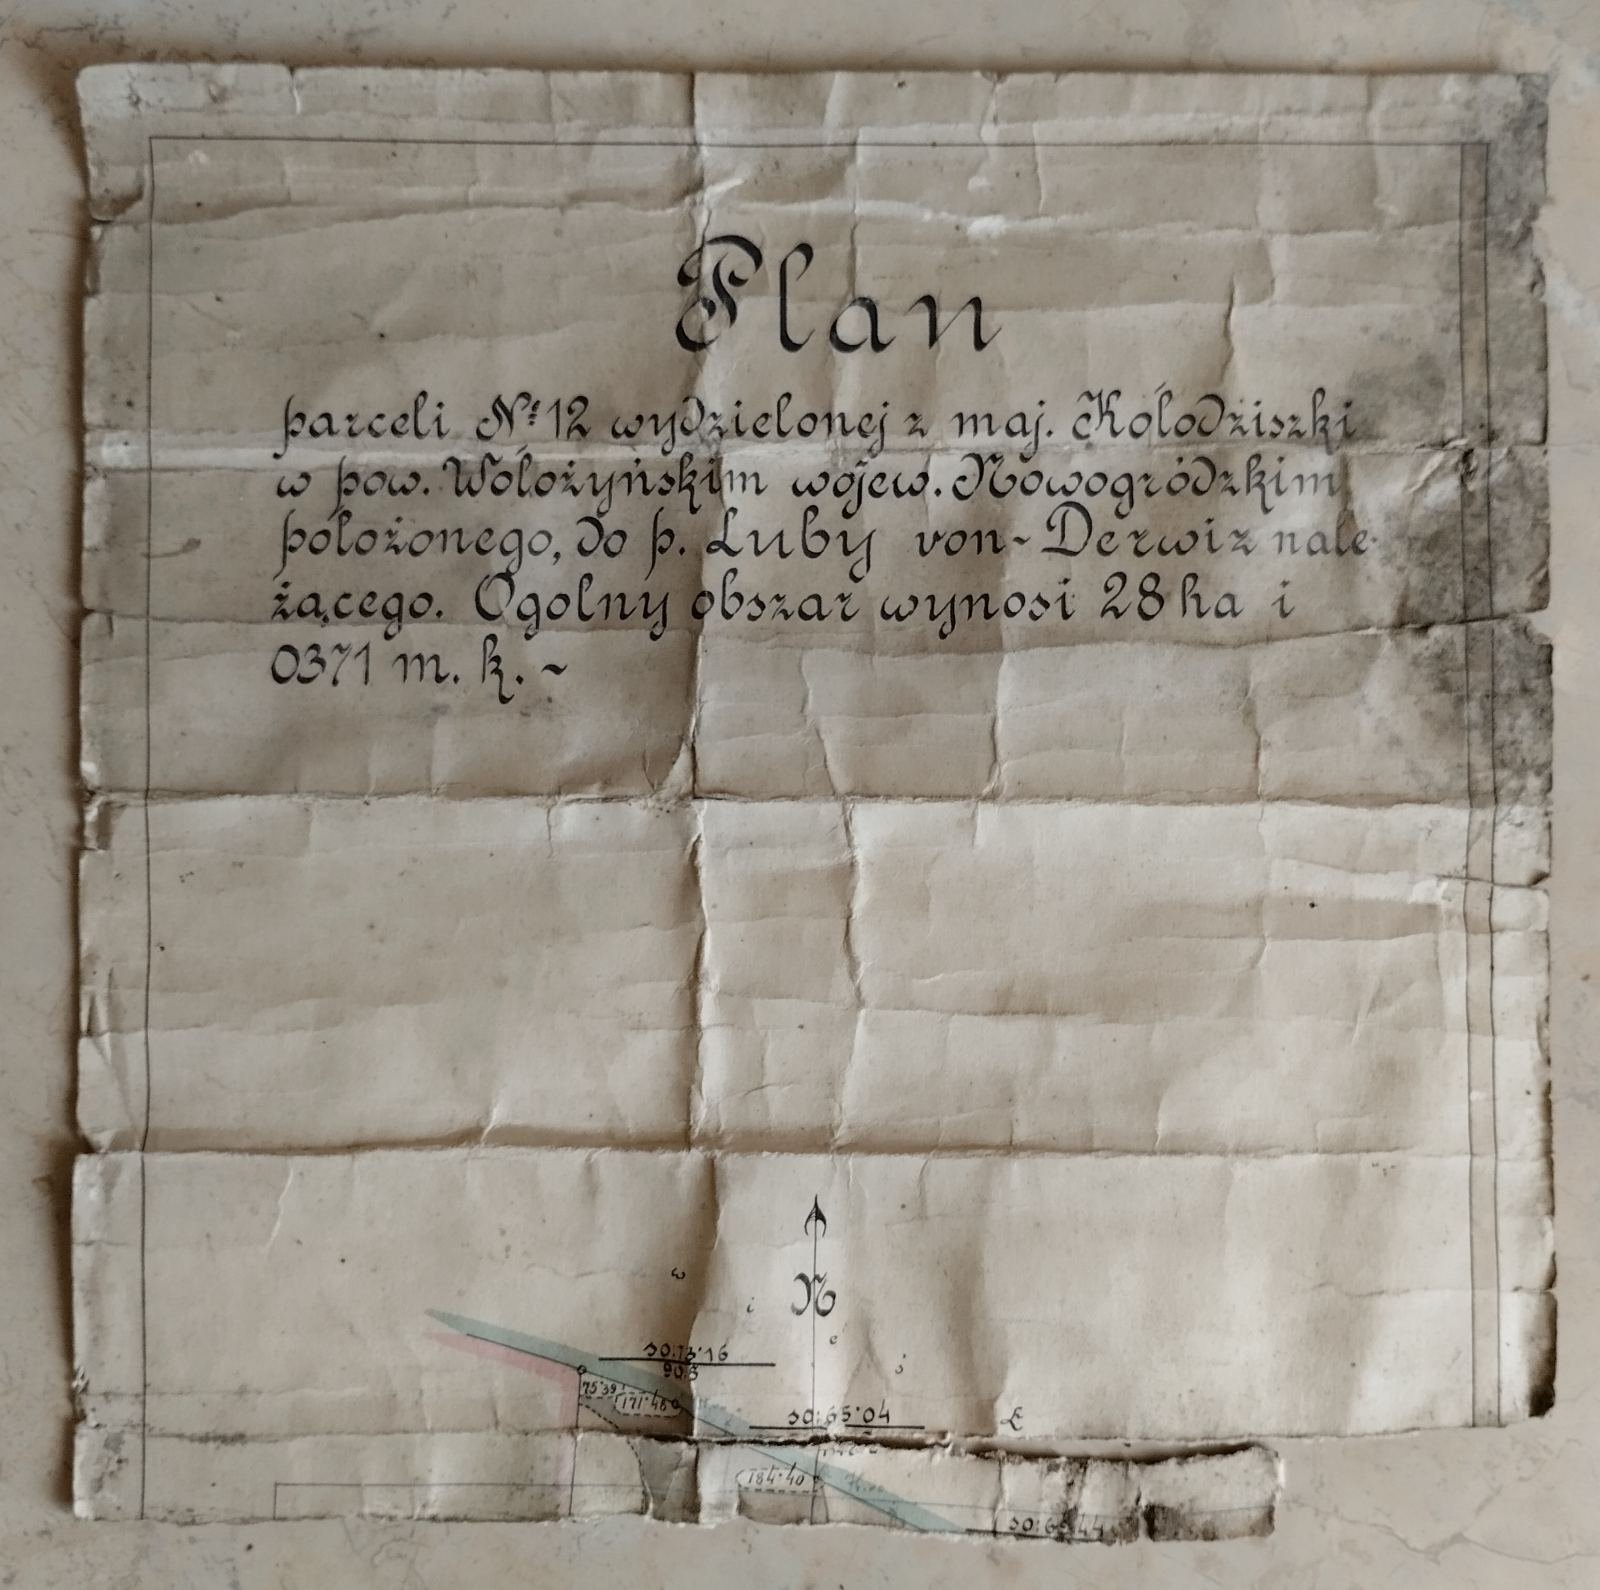 Plan
parceli № 12 wydzielonej z maj. Kołodziszki
w pow. Wołożyńskim wojew. Nowogródzkim
położonego, do p. Luby von-Derwiz nale-
żącego. Ogolny obszar wynosi 28 ha i
0371 m. k. ~
N
w
i
e
ś
SO:13·16
90.8
75·39
171·48
SO:65·04
Ł
184·40